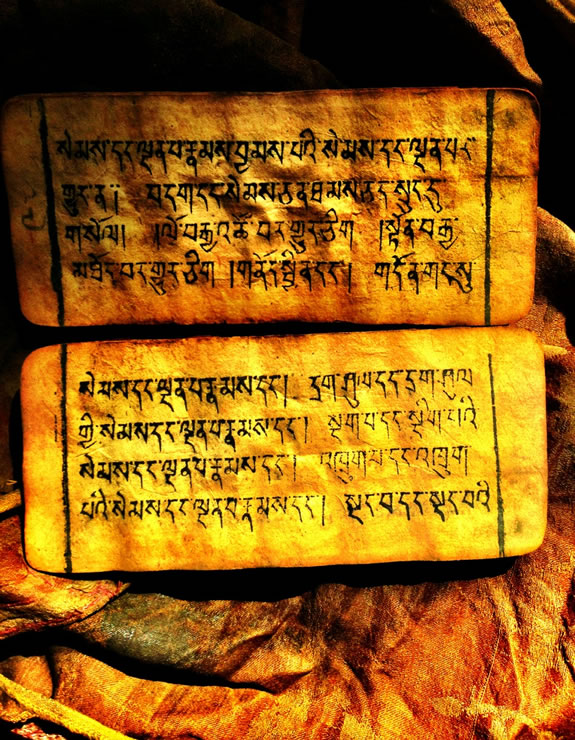 སེམས་དང་ལྡན་པ་རྣམས་བྱམས་པའི་སེམས་དང་ལྡན་པར་
གྱུར་ན། བདག་དང་སེམས་ཅན་ཐམས་ཅད་སྲུང་དུ་
གསོལ། །ལོ་བརྒྱ་འཚོ་བར་གྱུར་ཅིག །སྟོན་བརྒྱ་
མཐོང་བར་གྱུར་ཅིག །གནོད་སྦྱིན་དང་། གདོན་གང་སུ་
སེམས་དང་ལྡན་པ་རྣམས་དང་། དྲག་ཤུལ་དང་དྲག་ཤུལ་
གྱི་སེམས་དང་ལྡན་པ་རྣམས་དང་། སྡིག་པ་དང་སྡིག་པའི་
སེམས་དང་ལྡན་པ་རྣམས་དང་། འཁྲུག་པ་དང་འཁྲུག་
པའི་སེམས་དང་ལྡན་པ་རྣམས་དང་། སྡང་བ་དང་སྡང་བའི་